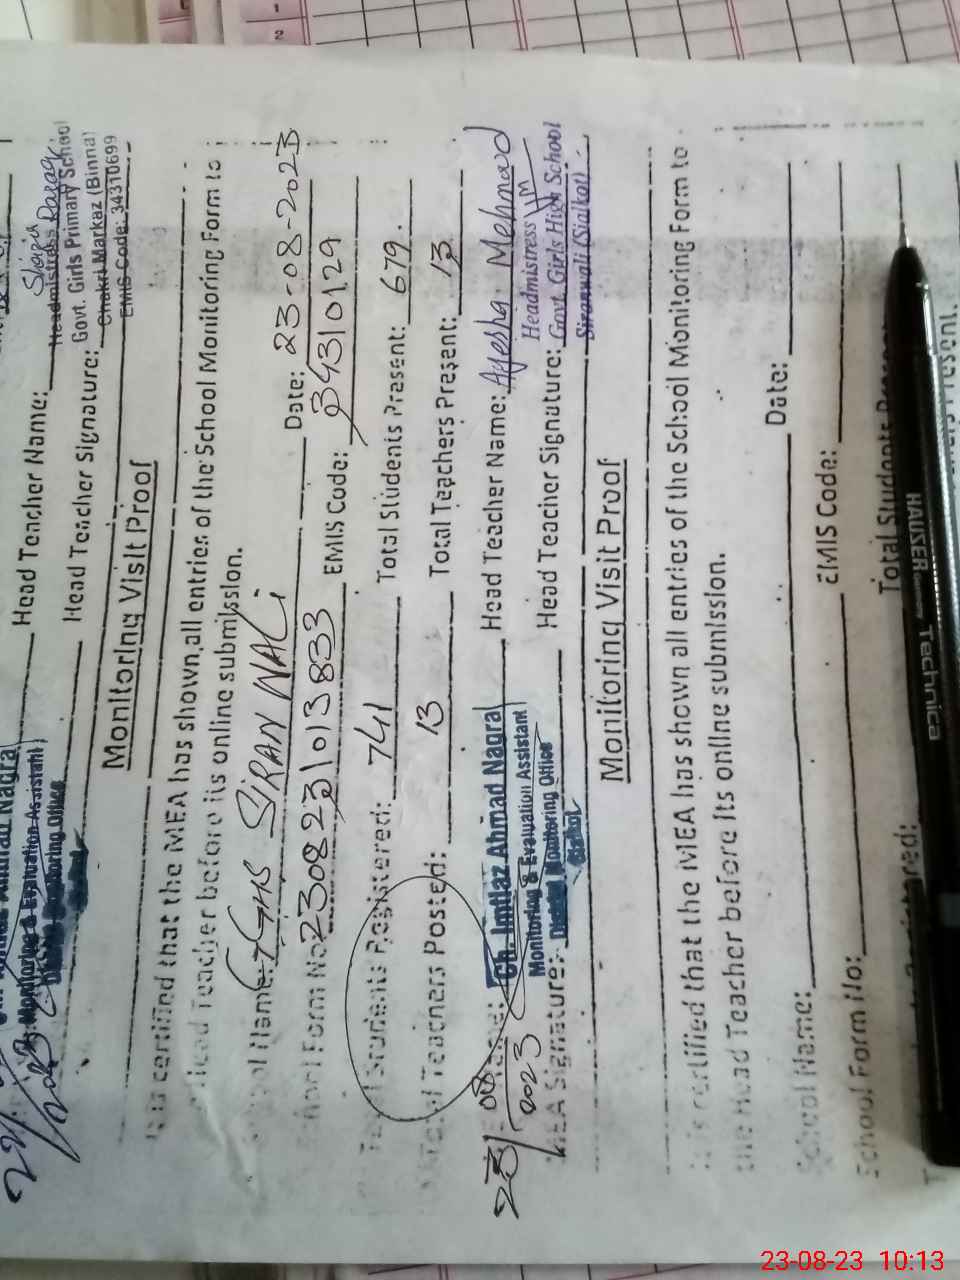 2
1
Head Teacher Name:
Shazia Razaq
Headmistress
Govt. Girls Primary School
Chakri Markaz (Binna
EMIS Code: 34310699
Head Teacher Signature:
Ahmad Nagra
Monitoring & Evaluation Assistant
Monitoring Office
Monitoring Visit Proof
is certified that the MEA has shown all entries of the School Monitoring Form to
Head Teacher before its online submission.
Name: GGHS SIRANWALI Date: 23-08-2023
Form No 2308231013833 EMIS Code: 34310129
Students Registered: 741 Total Students Present: 679.
Teachers Posted: 13 Total Teachers Present: 13
Name: Ch. Imtiaz Ahmad Nagra Head Teacher Name: Ayesha Mehmood
Monitoring & Evaluation Assistant
Monitoring Office
Sialkot
Headmistress
Govt. Girls High School
Siranwali (Sialkot)
MEA Signature: Head Teacher Signature:
23/08
2023
Monitoring Visit Proof
is certified that the MEA has shown all entries of the School Monitoring Form to
the Head Teacher before its online submission.
School Name: Date:
School Form No: EMIS Code:
Total Students
HAUSER Technica
23-08-23 10:13